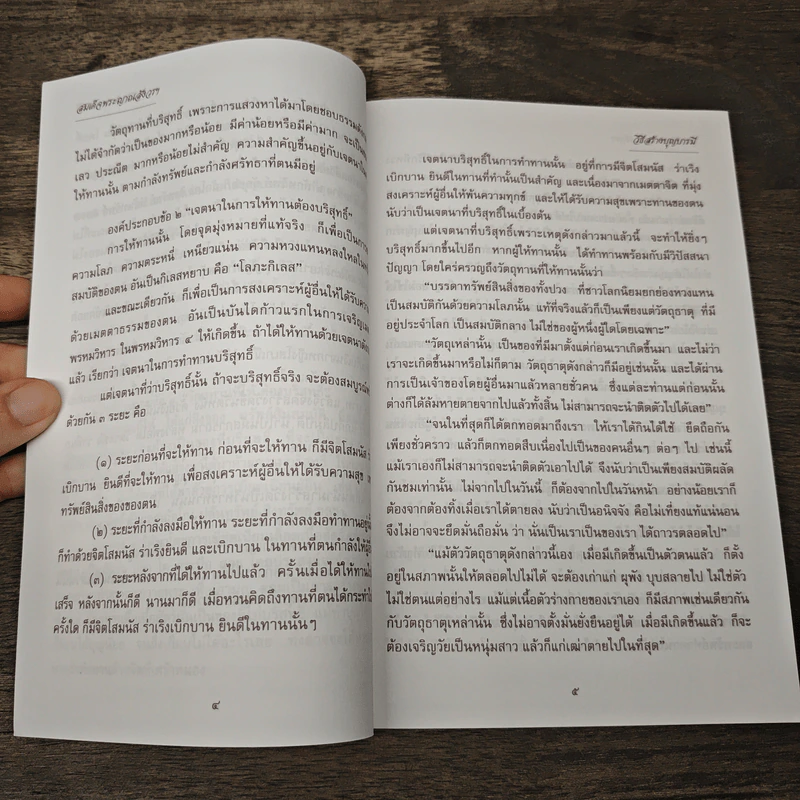 สมเด็จพระญาณสังวรฯ
วัตถุทานที่บริสุทธิ์ เพราะการแสวงหาได้มาโดยชอบธรรม
ไม่ได้จำกัดว่าเป็นของมากหรือน้อย มีค่าน้อยหรือมีค่ามาก จะเป็น
เลว ประณีต มากหรือน้อยไม่สำคัญ ความสำคัญขึ้นอยู่กับเจตนา
ให้ทานนั้น ตามกำลังทรัพย์และกำลังศรัทธาที่ตนมีอยู่
องค์ประกอบข้อ ๒ "เจตนาในการให้ทานต้องบริสุทธิ์"
การให้ทานนั้น โดยจุดมุ่งหมายที่แท้จริง ก็เพื่อเป็นการ
ความโลภ ความตระหนี่ เหนียวแน่น ความหวงแหนหลงใหลใน
สมบัติของตน อันเป็นกิเลสหยาบ คือ "โลภะกิเลส"
และขณะเดียวกัน ก็เพื่อเป็นการสงเคราะห์ผู้อื่นให้ได้รับ
ด้วยเมตตาธรรมของตน อันเป็นบันไดก้าวแรกในการเจริญ
พรหมวิหาร ในพรหมวิหาร ๔ ให้เกิดขึ้น ถ้าได้ให้ทานด้วยเจตนา
แล้ว เรียกว่า เจตนาในการทำทานบริสุทธิ์
แต่เจตนาที่ว่าบริสุทธิ์นั้น ถ้าจะบริสุทธิ์จริง จะต้องสมบูรณ์
ด้วยกัน ๓ ระยะ คือ
(๑) ระยะก่อนที่จะให้ทาน ก่อนที่จะให้ทาน ก็มีจิตโสมนัส
เบิกบาน ยินดีที่จะให้ทาน เพื่อสงเคราะห์ผู้อื่นให้ได้รับความสุข
ทรัพย์สินสิ่งของของตน
(๒) ระยะที่กำลังลงมือให้ทาน ระยะที่กำลังลงมือทำทานอยู่
ก็ทำด้วยจิตโสมนัส ร่าเริงยินดี และเบิกบาน ในทานที่ตนกำลังให้
(๓) ระยะหลังจากที่ได้ให้ทานไปแล้ว ครั้นเมื่อได้ให้ทาน
เสร็จ หลังจากนั้นก็ดี นานมาก็ดี เมื่อหวนคิดถึงทานที่ตนได้กระทำ
ครั้งใด ก็มีจิตโสมนัส ร่าเริงเบิกบาน ยินดีในทานนั้นๆ
๔
วิธีสร้างบุญบารมี
เจตนาบริสุทธิ์ในการทำทานนั้น อยู่ที่การมีจิตโสมนัส ร่าเริง
เบิกบาน ยินดีในทานที่ทำนั้นเป็นสำคัญ และเนื่องมาจากเมตตาจิต ที่มุ่ง
สงเคราะห์ผู้อื่นให้พ้นความทุกข์ และให้ได้รับความสุขเพราะทานของตน
นับว่าเป็นเจตนาที่บริสุทธิ์ในเบื้องต้น
แต่เจตนาที่บริสุทธิ์เพราะเหตุดังกล่าวมาแล้วนี้ จะทำให้ยิ่งๆ
บริสุทธิ์มากขึ้นไปอีก หากผู้ให้ทานนั้น ได้ทำทานพร้อมกับมีวิปัสสนา
ปัญญา โดยใคร่ครวญถึงวัตถุทานที่ให้ทานนั้นว่า
"บรรดาทรัพย์สินสิ่งของทั้งปวง ที่ชาวโลกนิยมยกย่องหวงแหน
เป็นสมบัติกันด้วยความโลภนั้น แท้ที่จริงแล้วก็เป็นเพียงแต่วัตถุธาตุ ที่มี
อยู่ประจำโลก เป็นสมบัติกลาง ไม่ใช่ของผู้หนึ่งผู้ใดโดยเฉพาะ"
"วัตถุเหล่านั้น เป็นของที่มีมาตั้งแต่ก่อนเราเกิดขึ้นมา และไม่ว่า
เราจะเกิดขึ้นมาหรือไม่ก็ตาม วัตถุธาตุดังกล่าวก็มีอยู่เช่นนั้น และได้ผ่าน
การเป็นเจ้าของโดยผู้อื่นมาแล้วหลายชั่วคน ซึ่งแต่ละท่านแต่ก่อนนั้น
ต่างก็ได้ล้มหายตายจากไปแล้วทั้งสิ้น ไม่สามารถจะนำติดตัวไปได้เลย"
"จนในที่สุดก็ได้ตกทอดมาถึงเรา ให้เราได้กินได้ใช้ ยึดถือกัน
เพียงชั่วคราว แล้วก็ตกทอดสืบเนื่องไปเป็นของคนอื่นๆ ต่อๆ ไป เช่นนี้
แม้เราเองก็ไม่สามารถจะนำติดตัวเอาไปได้ จึงนับว่าเป็นเพียงสมบัติผลัด
กันชมเท่านั้น ไม่จากไปในวันนี้ ก็ต้องจากไปในวันหน้า อย่างน้อยเราก็
ต้องจากต้องทิ้งเมื่อเราได้ตายลง นับว่าเป็นอนิจจัง คือไม่เที่ยงแท้แน่นอน
จึงไม่อาจจะยึดมั่นถือมั่น ว่า นั่นเป็นเราเป็นของเรา ได้ถาวรตลอดไป"
"แม้ตัววัตถุธาตุดังกล่าวนี้เอง เมื่อมีเกิดขึ้นเป็นตัวตนแล้ว ก็ตั้ง
อยู่ในสภาพนั้นให้ตลอดไปไม่ได้ จะต้องเก่าแก่ ผุพัง บุบสลายไป ไม่ใช่ตัว
ไม่ใช่ตนแต่อย่างไร แม้แต่เนื้อตัวร่างกายของเราเอง ก็มีสภาพเช่นเดียวกัน
กับวัตถุธาตุเหล่านั้น ซึ่งไม่อาจตั้งมั่นยั่งยืนอยู่ได้ เมื่อมีเกิดขึ้นแล้ว ก็จะ
ต้องเจริญวัยเป็นหนุ่มสาว แล้วก็แก่เฒ่าตายไปในที่สุด"
๕